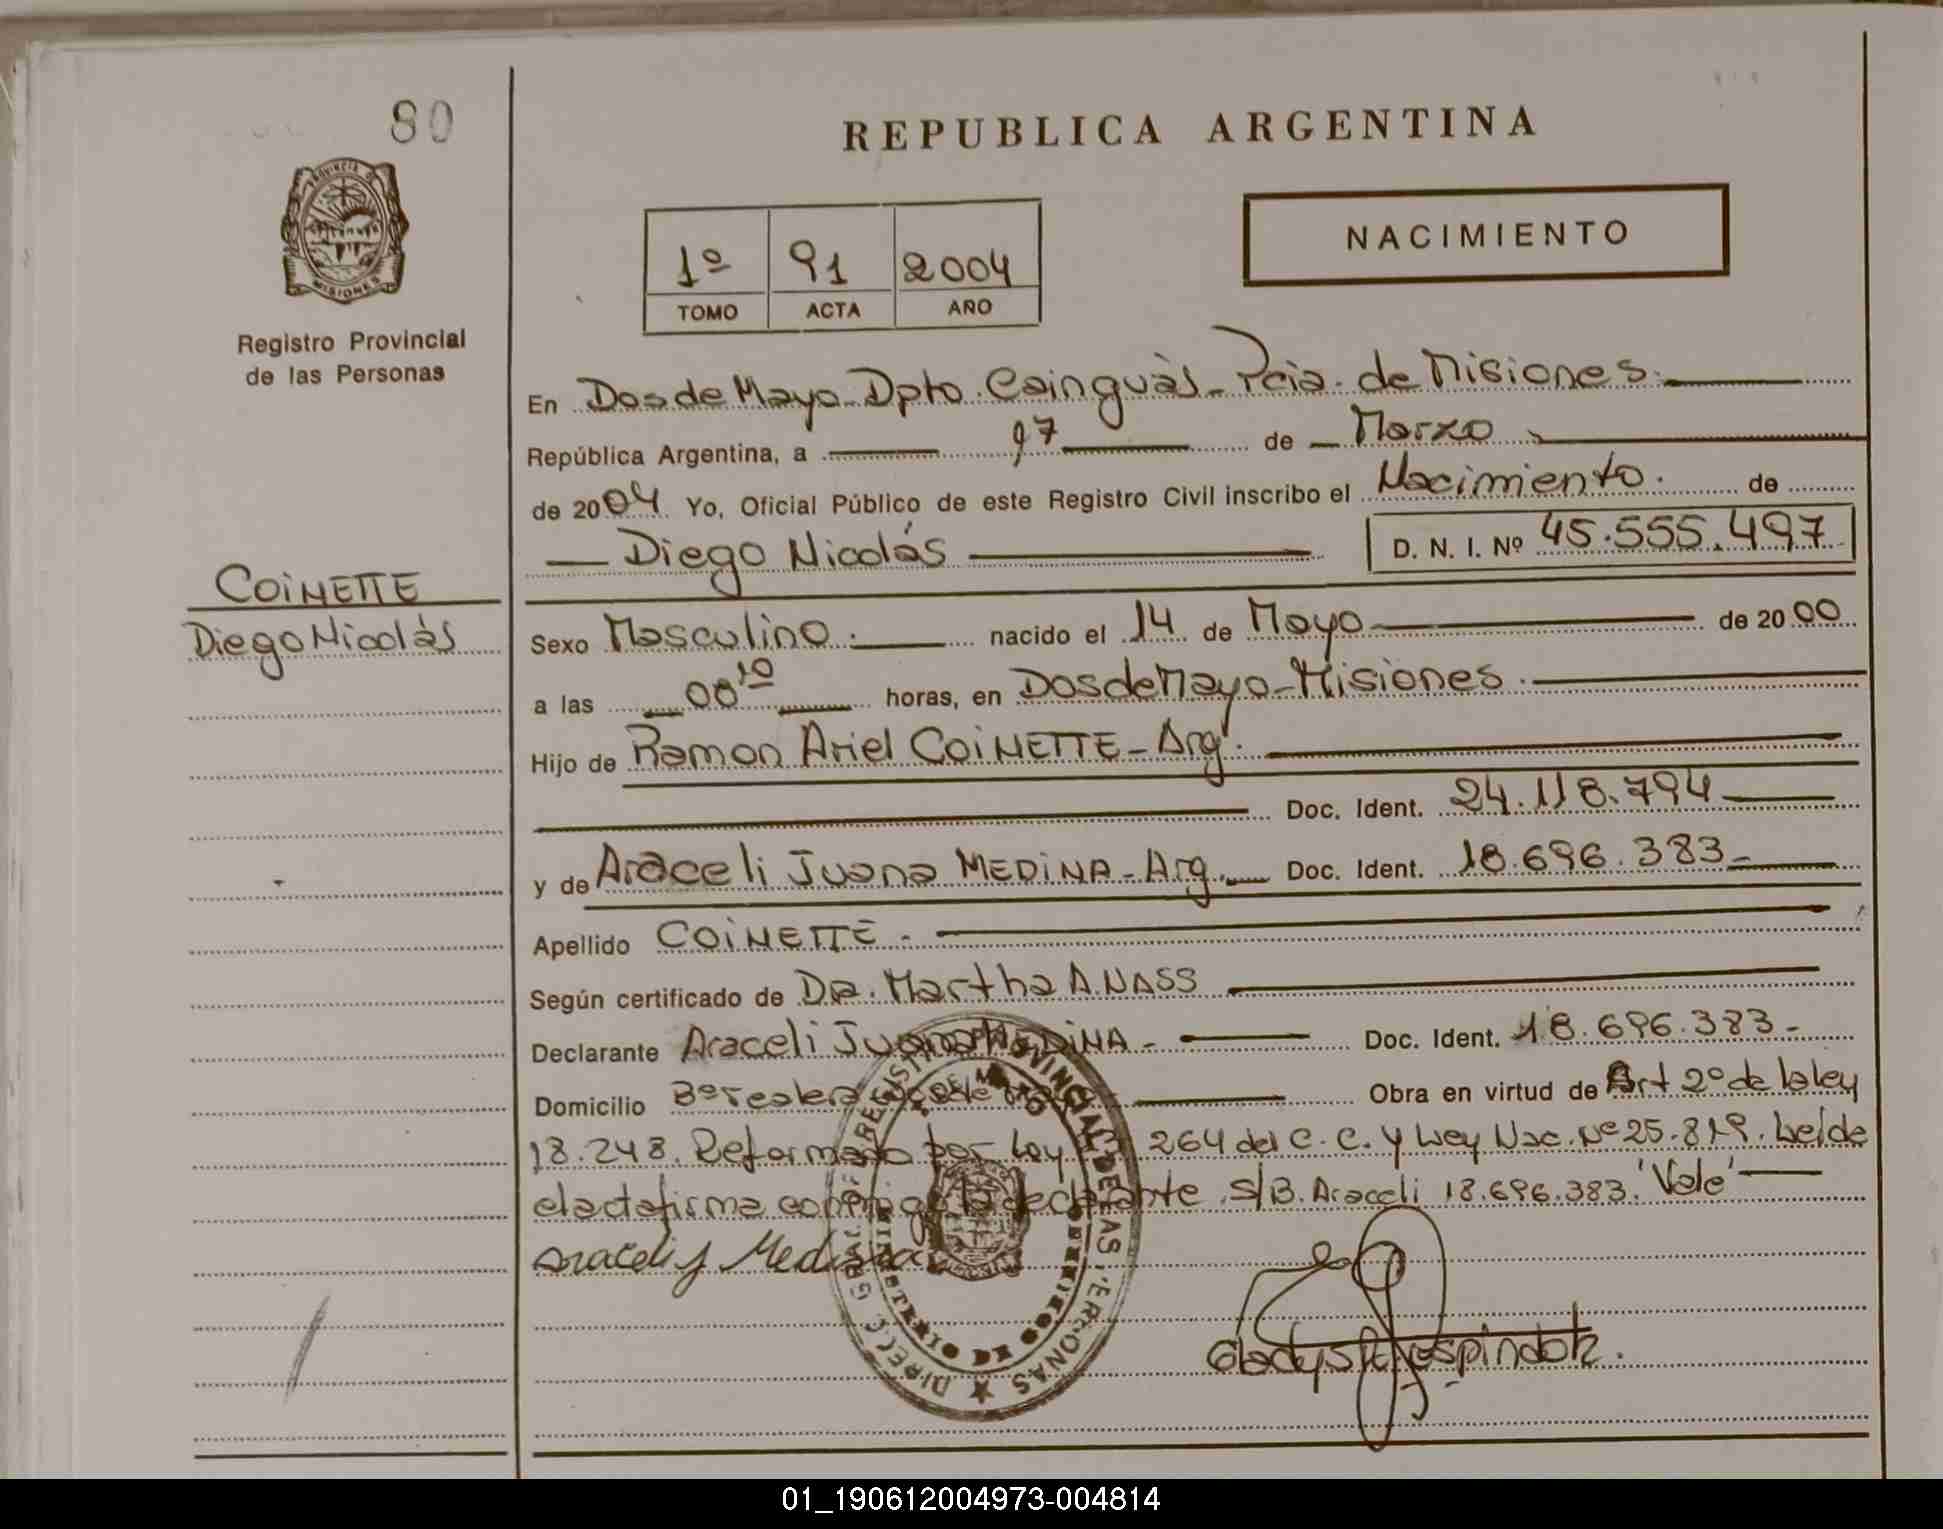 80
REPUBLICA ARGENTINA
PROVINCIA DE
MISIONES
Registro Provincial
de las Personas
NACIMIENTO
1º 91 2004
TOMO ACTA AÑO
En Dos de Mayo Dpto. Cainguàs - Pcia. de Misiones.
República Argentina, a 97 de Marzo
de 2004 Yo, Oficial Público de este Registro Civil inscribo el Nacimiento. de
Diego Nicolás D. N. I. Nº 45.555.497
COiNETTE
Diego Nicolàs
Sexo Masculino. nacido el 14 de Mayo de 2000
a las 00 10 horas, en Dos de Mayo - Misiones.
Hijo de Ramon Ariel COiNETTE - Arg.
Doc. Ident. 24.118.794
y de Araceli Juana MEDiNA - Arg. Doc. Ident. 18.696.383
Apellido COiNETTE.
Según certificado de Dra. Martha A. NASS
Declarante Araceli Juana MEDiNA - Doc. Ident. 18.696.383 -
Domicilio Obra en virtud de Art 2º de la ley
18.248. Reformado por Ley 264 del C. C. y Ley Nac. Nº 25.819. Leída
el acta firma conmigo la declarante. S/B. Araceli 18.696.383. 'Vale'
Araceli J Medina
DIRECC GRAL REGISTRO PROVINCIAL DE LAS PERSONAS
MINISTERIO DE GOBIERNO
Gladys Espindola.
01_190612004973-004814